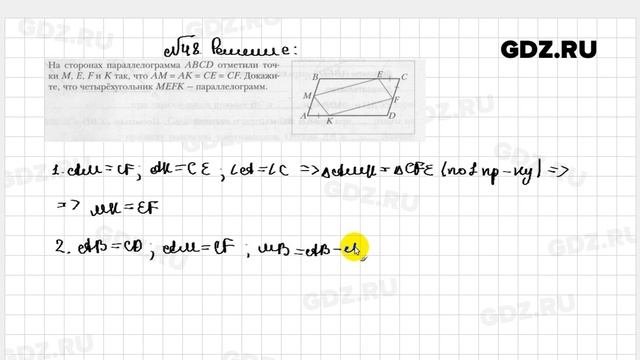 №48 Решение:
GDZ.RU
На сторонах параллелограмма ABCD отметили точ-
ки M, E, F и K так, что AM = AK = CE = CF. Докажи-
те, что четырёхугольник MEFK – параллелограмм.
B E C
M F
A K D
1. AM = CF ; AK = CE ; ∠A = ∠C => △AMK = △CFE (по 1 пр-ку) =>
=> MK = EF
2. AB = CD ; AM = CF ; MB = AB –